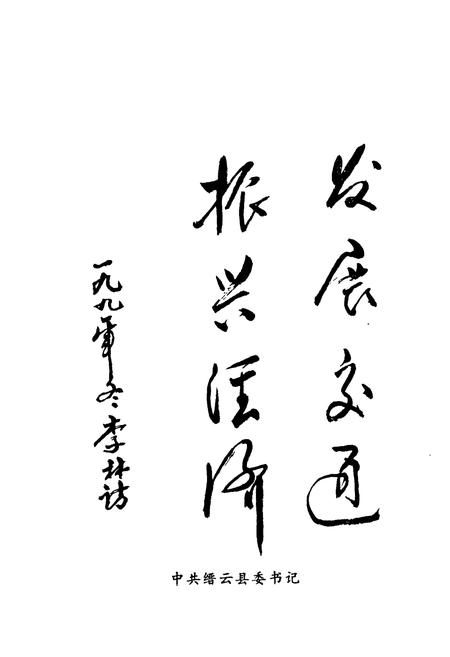 发展交通
振兴经济
一九九年冬李林访
中共缙云县委书记